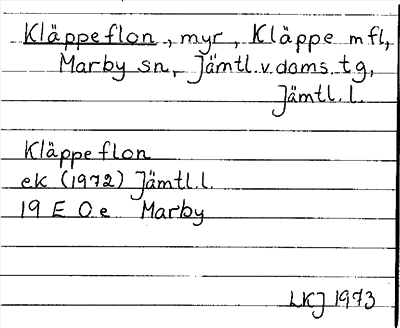 Kläppeflon, myr, Kläppe m fl,
Marby sn, Jämtl. v. doms. t g,
Jämtl. l.
Kläppeflon
ek (1972) Jämtl. l.
19 E 0 e Marby
LKJ 1973